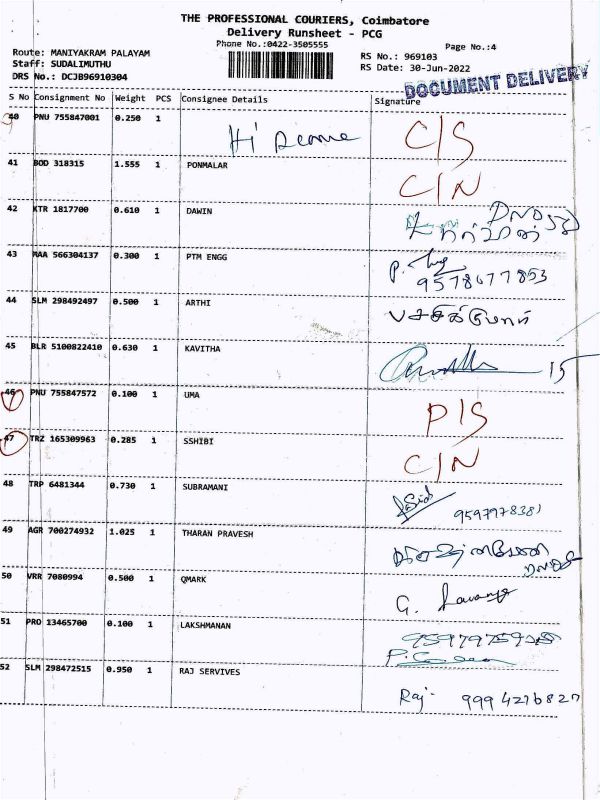 THE PROFESSIONAL COURIERS, Coimbatore
Delivery Runsheet - PCG
Phone No.:0422-3505555
Page No.:4
Route: MANIYAKRAM PALAYAM
Staff: SUDALIMUTHU
DRS No.: DCJB96910304
RS No.: 969103
RS Date: 30-Jun-2022
DOCUMENT DELIVERY
S No Consignment No Weight PCS Consignee Details Signature
40 PNU 755847001 0.250 1 Hi C/S
41 BOD 318315 1.555 1 PONMALAR C/N
42 KTR 1817700 0.610 1 DAWIN
43 MAA 566304137 0.300 1 PTM ENGG P.
9578677853
44 SLM 298492497 0.500 1 ARTHI
45 BLR 5100822410 0.630 1 KAVITHA 15
46 PNU 755847572 0.100 1 UMA P/S
47 TRZ 165309963 0.285 1 SSHIBI C/N
48 TRP 6481344 0.730 1 SUBRAMANI
959797838
49 AGR 700274932 1.025 1 THARAN PRAVESH
50 VRR 7080994 0.500 1 QMARK G.
51 PRO 13465700 0.100 1 LAKSHMANAN
52 SLM 298472515 0.950 1 RAJ SERVIVES Raj- 9994276827